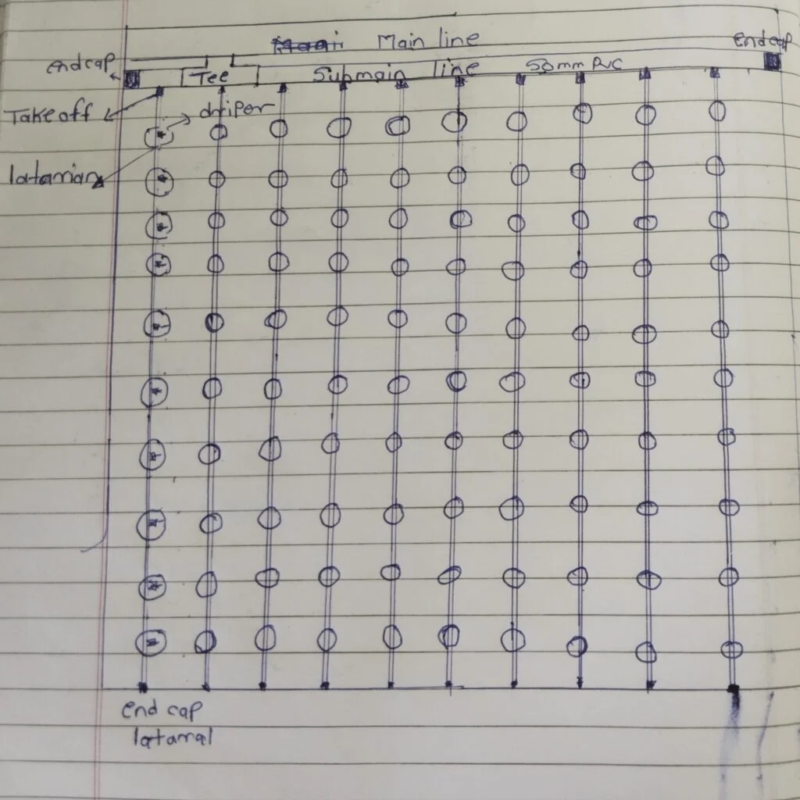 Main line
endcap
endcap
Tee
Submain line
50mm PVC
Takeoff
driper
lataman
end cap
lataral